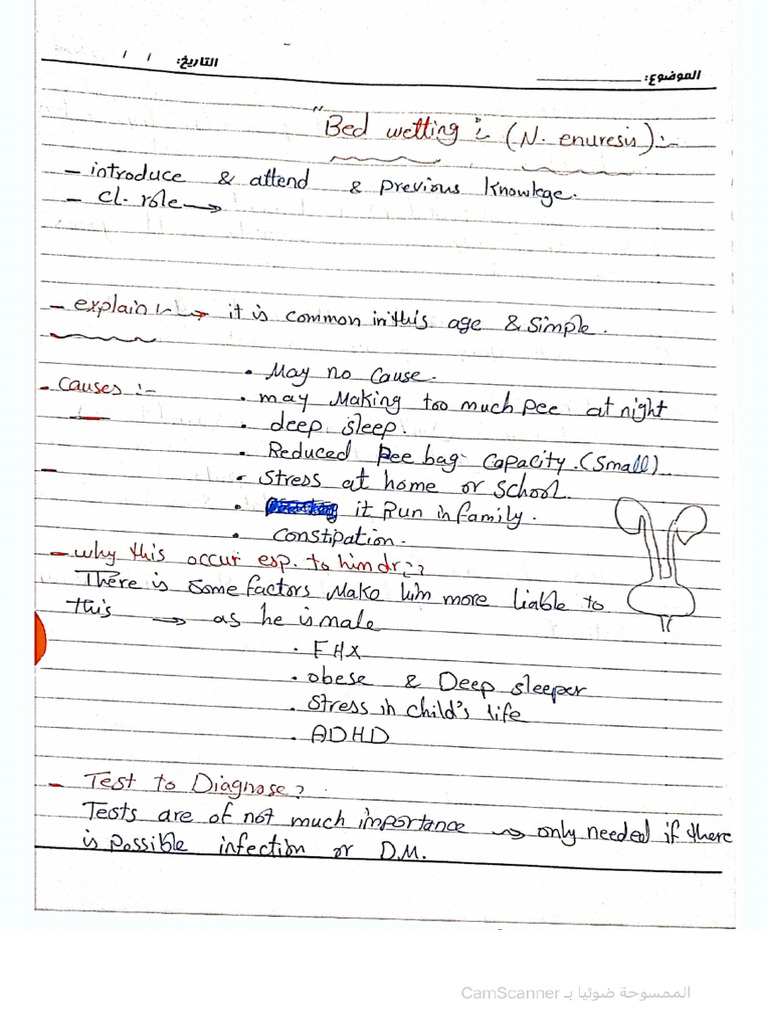 الموضوع: التاريخ: / /
"Bed wetting :- (N. enuresis):-
- introduce & attend & previous knowlege.
- cl. role →
- explain :- → it is common in this age & simple.
- causes :-
• May no cause.
• may Making too much pee at night
• deep sleep.
• Reduced Pee bag capacity. (small)
• stress at home or school.
• it Run in family.
• constipation.
- why this occur esp. to him dr??
There is some factors Make him more liable to
this → as he is male
• FHX
• obese & Deep sleeper
• stress in child's life
• ADHD
- Test to Diagnose?
Tests are of not much importance → only needed if there
is possible infection or D.M.
الممسوحة ضوئيا بـ CamScanner